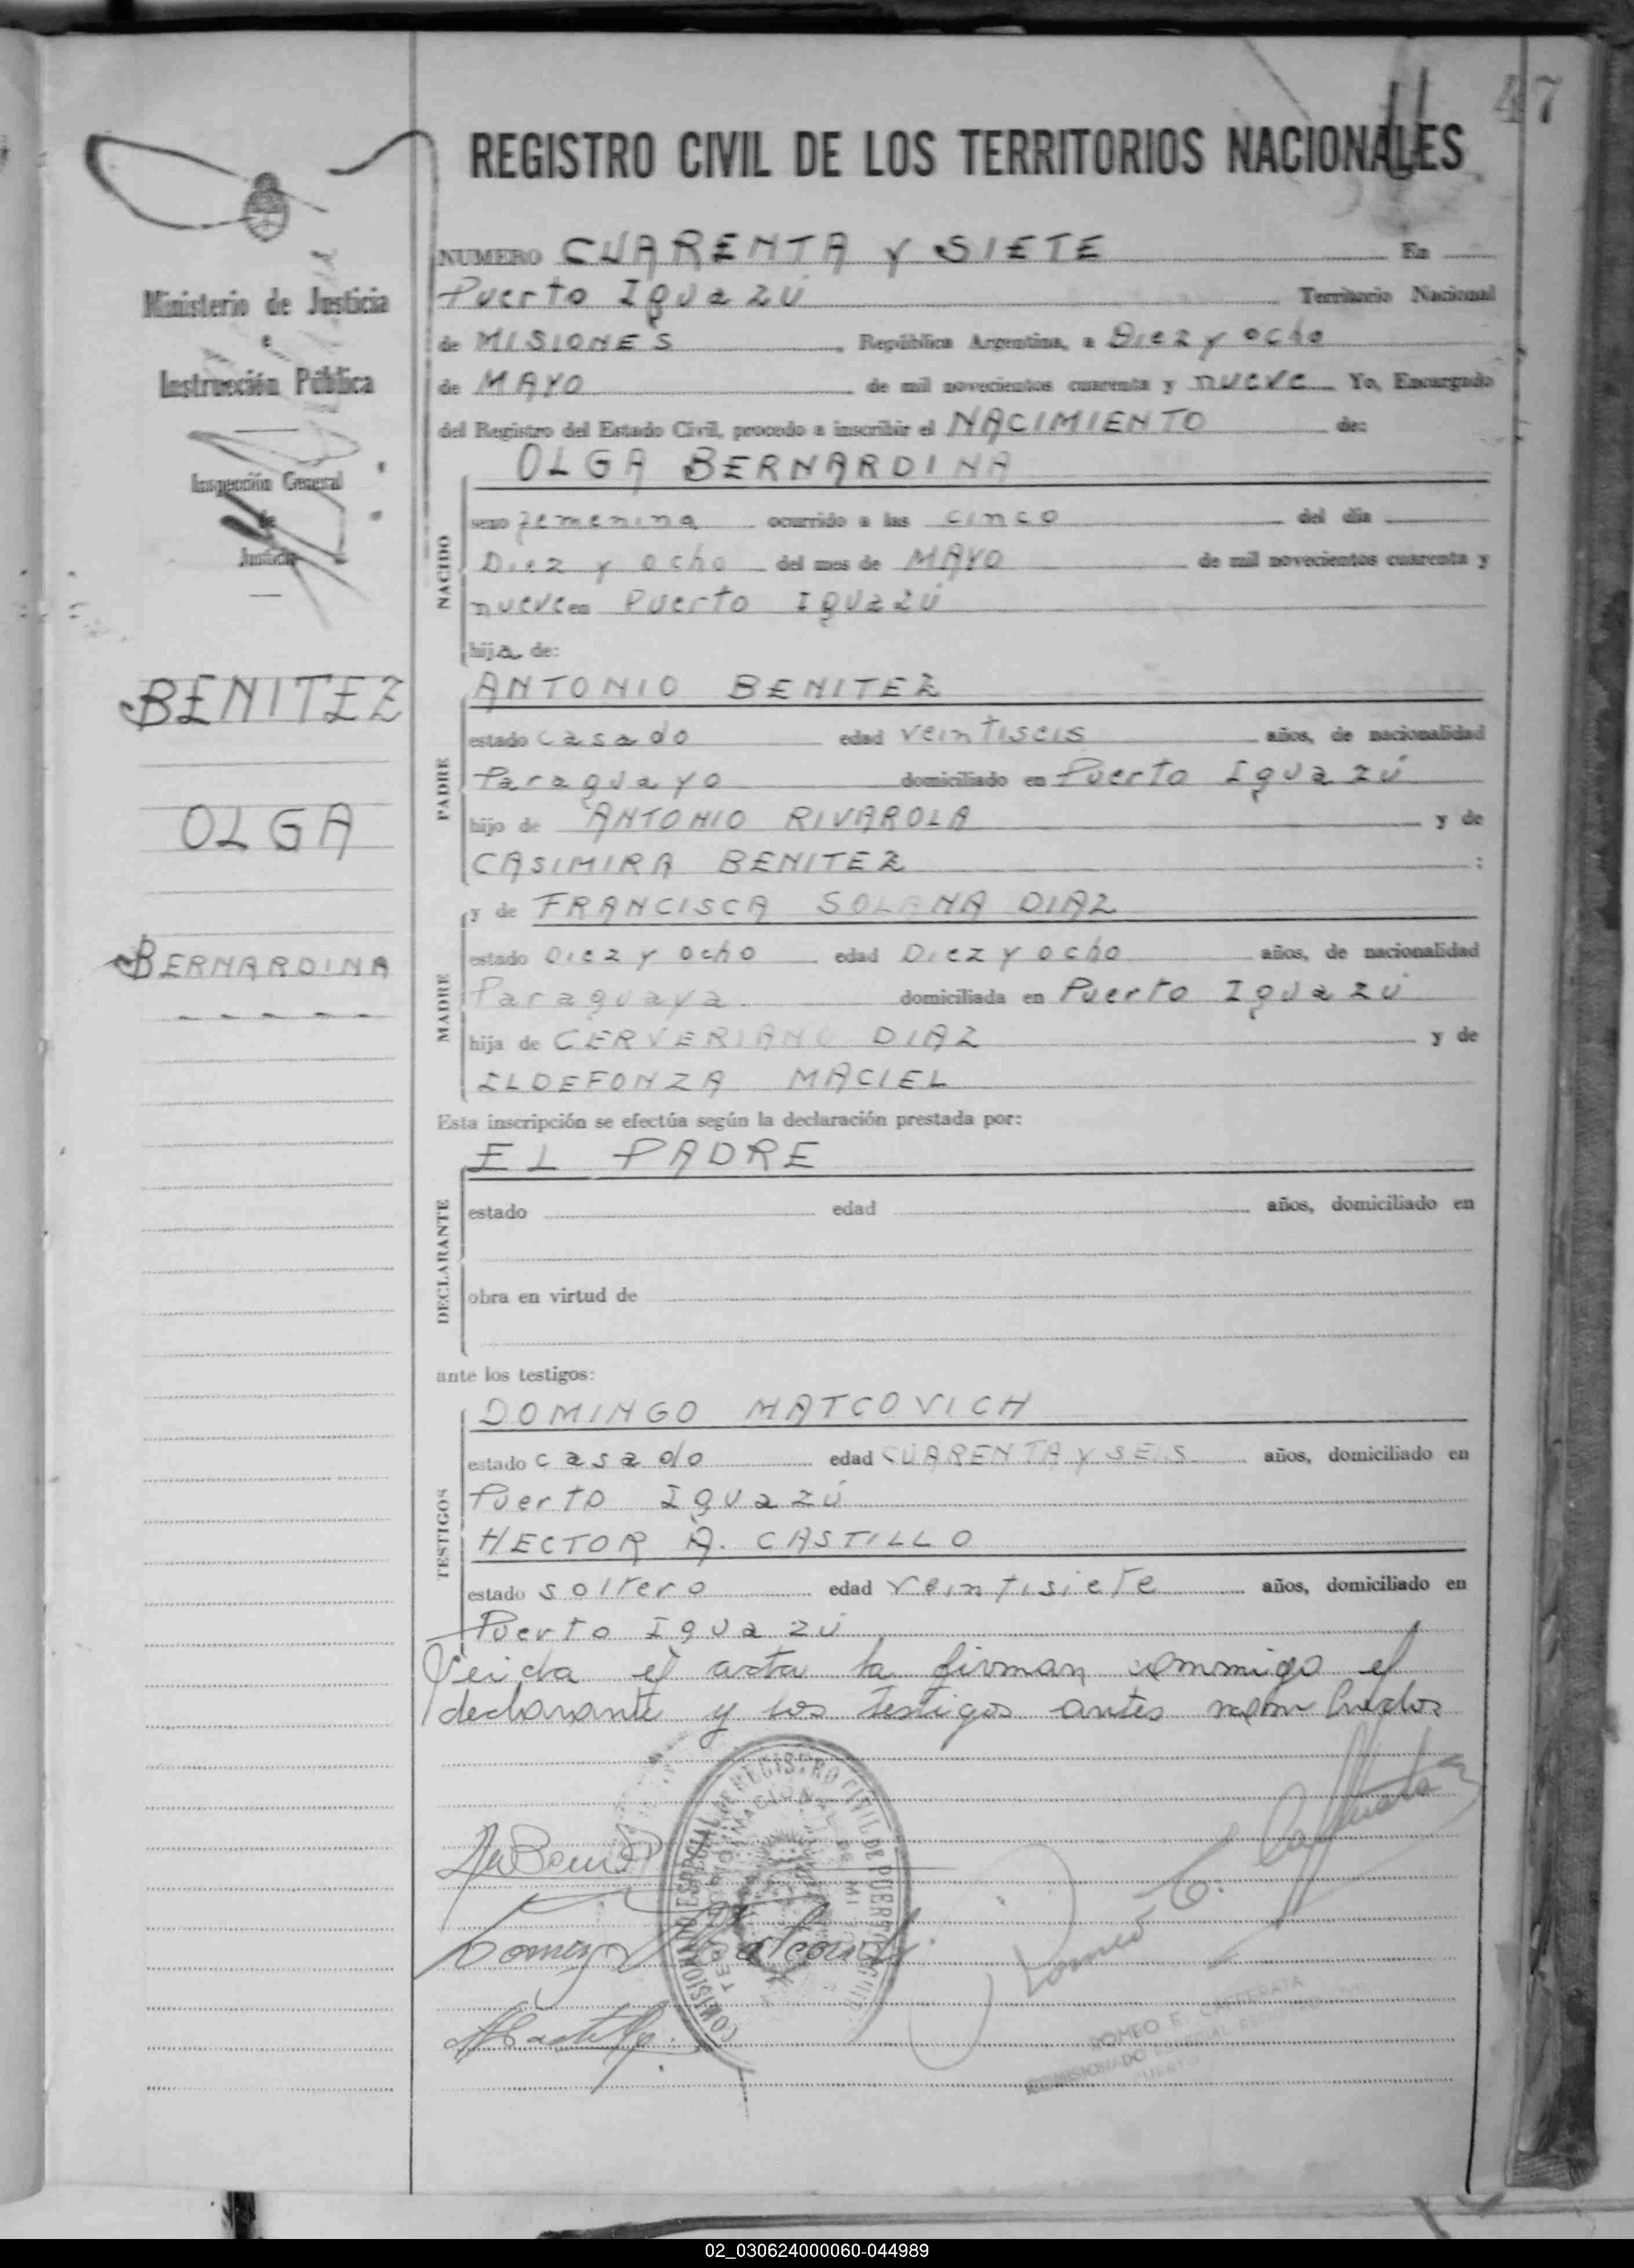 47
REGISTRO CIVIL DE LOS TERRITORIOS NACIONALES
Ministerio de Justicia
e
Instrucción Pública
Inspección General
de
Justicia
BENITEZ
OLGA
BERNARDINA
NUMERO CUARENTA Y SIETE En
Puerto Iguazú Territorio Nacional
de MISIONES, República Argentina, a Diez y ocho
de MAYO de mil novecientos cuarenta y nueve Yo, Encargado
del Registro del Estado Civil, procedo a inscribir el NACIMIENTO de:
NACIDO
OLGA BERNARDINA
sexo femenina ocurrido a las cinco del día
Diez y ocho del mes de MAYO de mil novecientos cuarenta y
nueve en Puerto Iguazú
hija de:
PADRE
ANTONIO BENITEZ
estado casado edad veintiseis años, de nacionalidad
Paraguayo domiciliado en Puerto Iguazú
hijo de ANTONIO RIVAROLA y de
CASIMIRA BENITEZ ;
MADRE
y de FRANCISCA SOLANA DIAZ
estado Diez y ocho edad Diez y ocho años, de nacionalidad
Paraguaya domiciliada en Puerto Iguazú
hija de CERVERIANO DIAZ y de
ILDEFONZA MACIEL
Esta inscripción se efectúa según la declaración prestada por:
DECLARANTE
EL PADRE
estado edad años, domiciliado en
obra en virtud de
ante los testigos:
TESTIGOS
DOMINGO MATCOVICH
estado casado edad CUARENTA Y SEIS años, domiciliado en
Puerto Iguazú
HECTOR A. CASTILLO
estado soltero edad veintisiete años, domiciliado en
Puerto Iguazú
Leída el acta la firman conmigo el
declarante y los testigos antes
COMISIONADO ESPECIAL DE REGISTRO CIVIL DE PUERTO
ROMEO E. CAFFERATA
COMISIONADO ESPECIAL
02_030624000060-044989